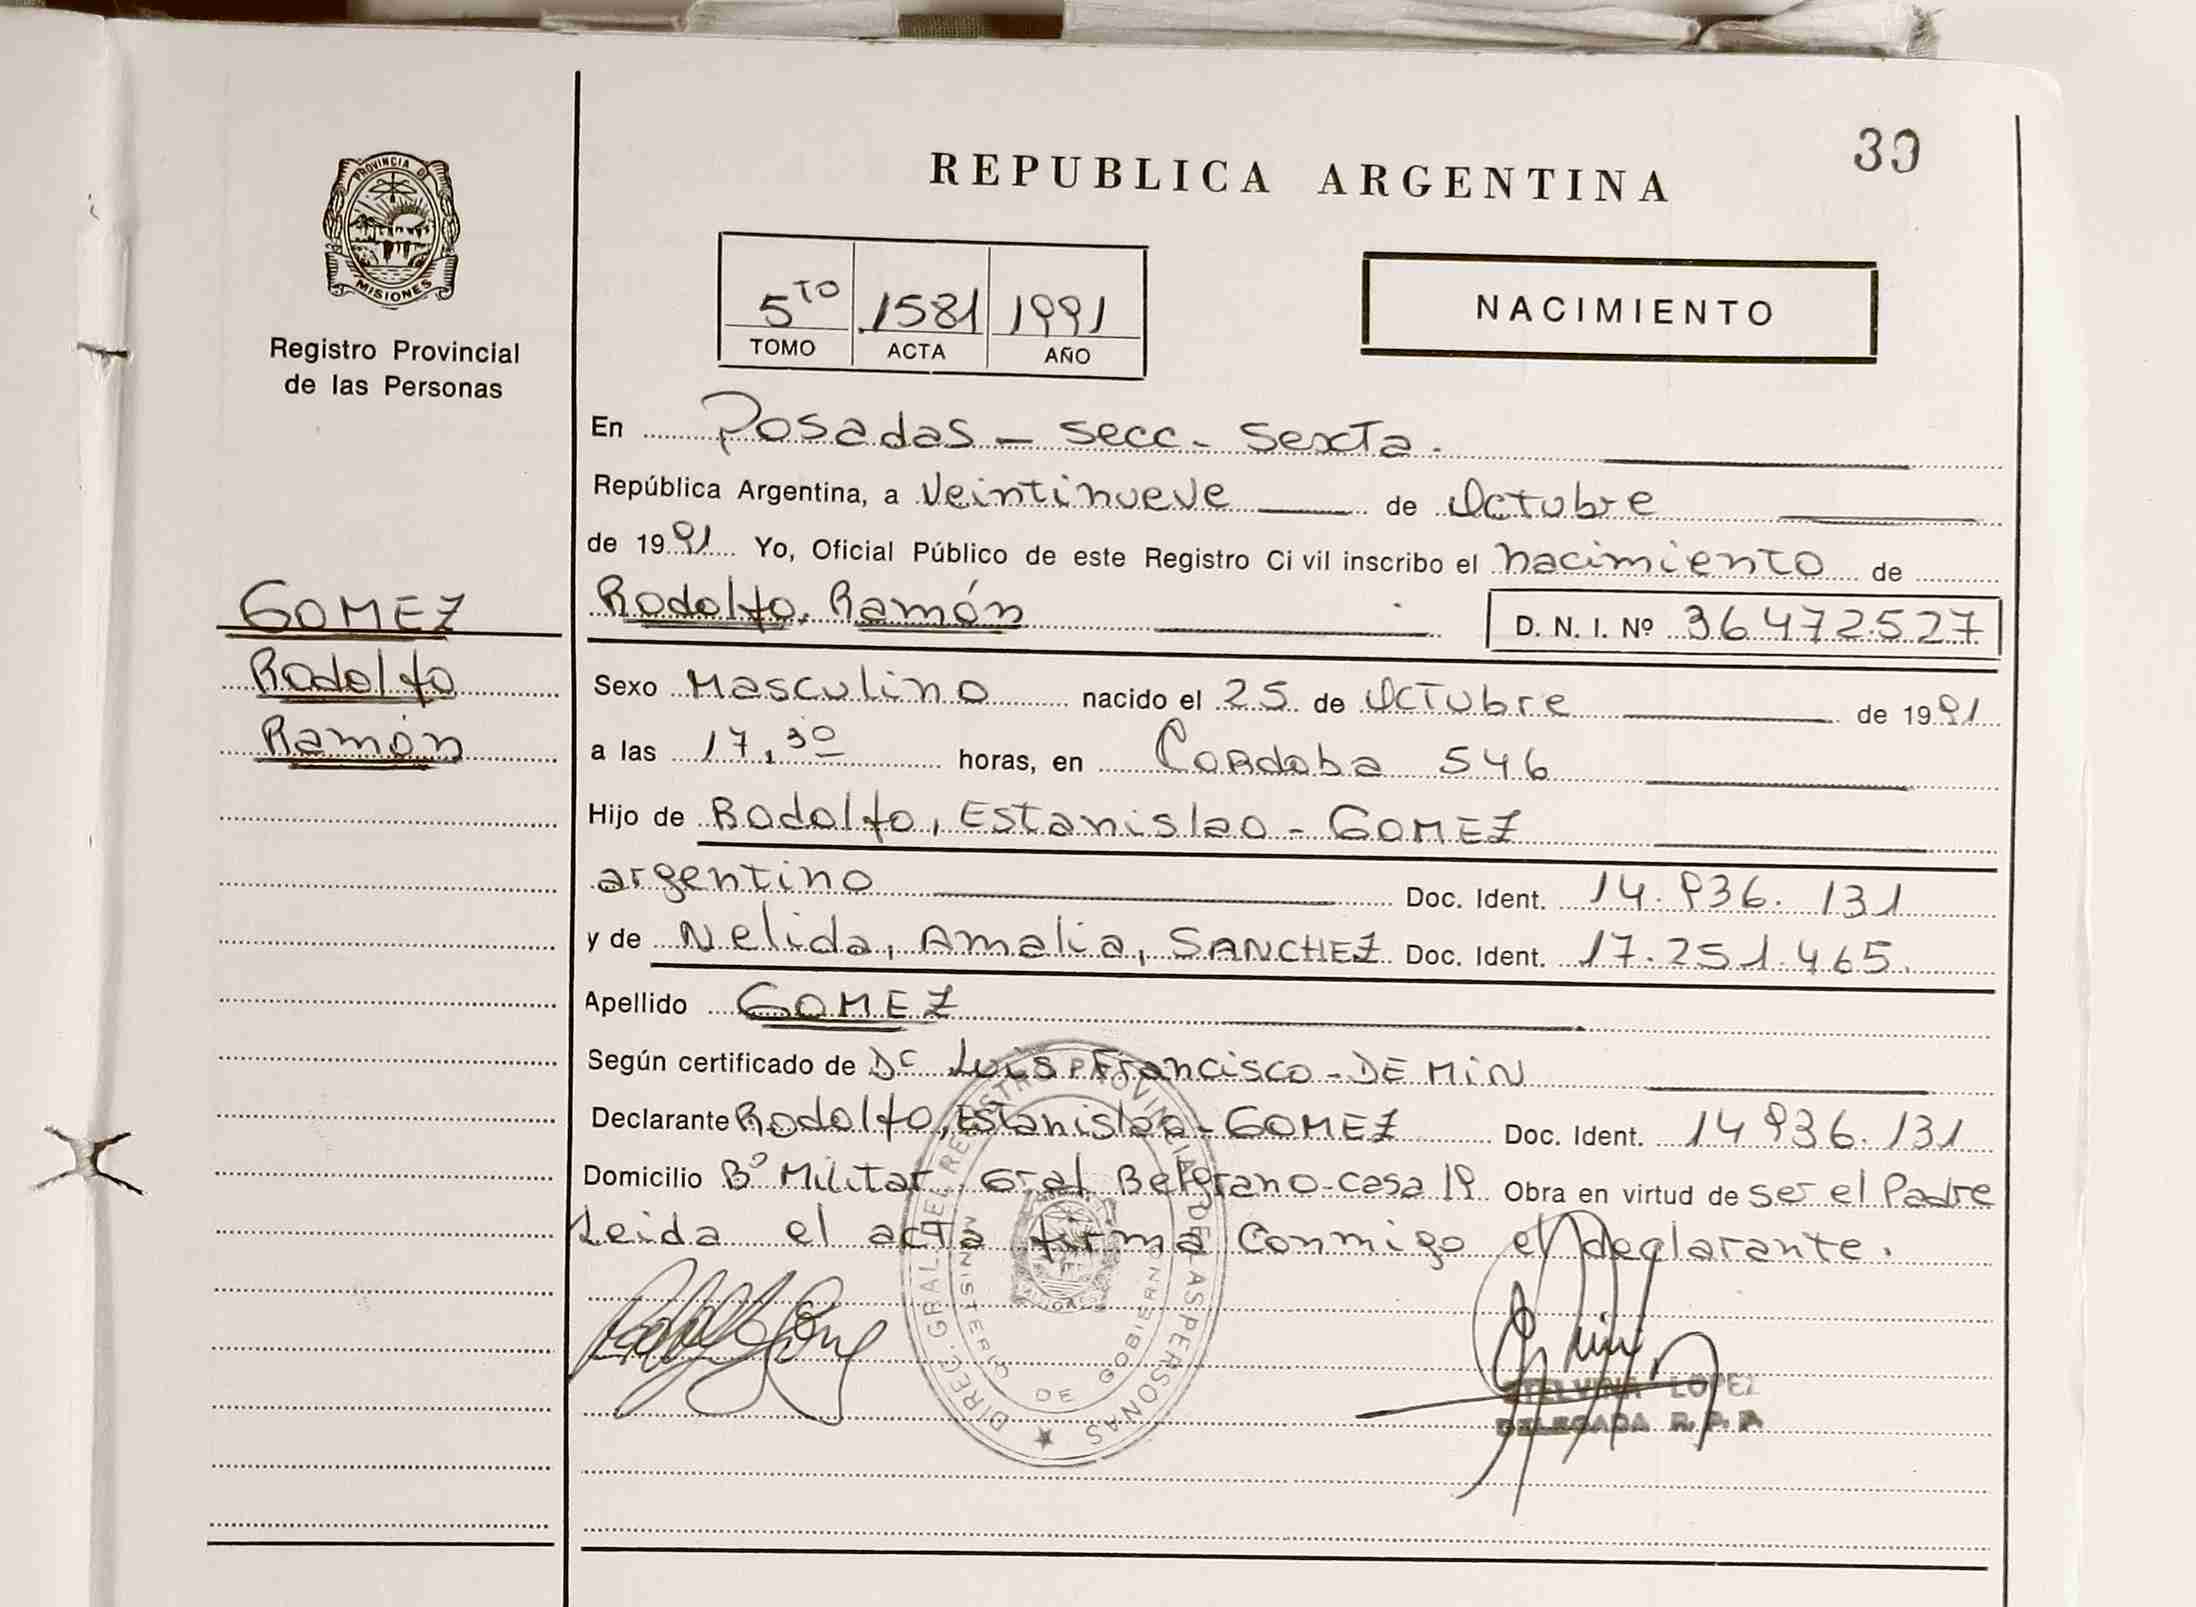 39
REPUBLICA ARGENTINA
PROVINCIA DE
MISIONES
Registro Provincial
de las Personas
5TO 1581 1991
TOMO ACTA AÑO
NACIMIENTO
En Posadas - secc - Sexta.
República Argentina, a Veintinueve de Octubre
de 1991 Yo, Oficial Público de este Registro Ci vil inscribo el nacimiento de
GOMEZ
Rodolfo
Ramón
Rodolfo, Ramón D. N. I. Nº 36472527
Sexo Masculino nacido el 25 de Octubre de 1991
a las 17,30 horas, en Cordoba 546
Hijo de Rodolfo, Estanislao - GOMEZ
argentino Doc. Ident. 14.936.131
y de Nelida, Amalia, SANCHEZ Doc. Ident. 17.251.465.
Apellido GOMEZ
Según certificado de Dr Luis Francisco - DE MIN
Declarante Rodolfo, Estanislao - GOMEZ Doc. Ident. 14936.131
Domicilio Bº Militar Gral Belgrano - casa 19 Obra en virtud de ser el Padre
Leida el acta firma conmigo el declarante.
DIREC. GRAL. DEL REGISTRO PROVINCIAL DE LAS PERSONAS
MINISTERIO DE GOBIERNO
MISIONES
ETELVINA LOPEZ
DELEGADA R. P. P.